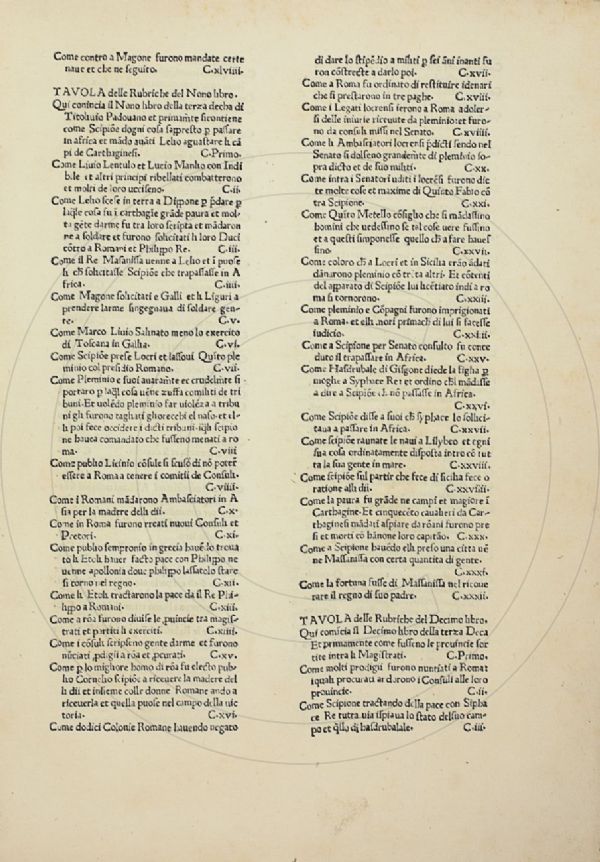 Come contro a Magone furono mandate certe
naue et che ne seguiro. C.xlviii.
TAVOLA delle Rubriche del Nono libro.
Qui comincia il Nono libro della terza decha di
Titoliuio Padouano et primamẽte
come Scipiõe dogni cosa p passare
in africa et mãdo auãti Lelio aguastare li cã
pi de Carthaginesi. C.Primo.
Come Liuio Lentulo et Lucio Manlio con Indi
bile et altri principi ribellati combatterono
et molti de loro uccisono. C.ii.
Come Lelio scese in terra a p dare p
laq̃le cosa fu i carthagĩe grãde paura et mol
ta gẽte darme fu tra loro scripta et mãdaron
ne a soldare et furono solicitati li loro Duci
cõtro a Romani et Philippo Re. C.iii.
Come il Re Masanissa uenne a Lelio et i puose
li ch̃ solicitasse Scipiõe che trapassasse in A
frica. C.iiii.
Come Magone solicitati e Galli et li Liguri a
prendere larme singegnaua di soldare gen-
te. C.v.
Come Marco Liuio Salinato meno lo exercito
di Toscana in Gallia. C.vi.
Come Scipiõe prese Locri et lassoui Quito ple
minio col presidio Romano. C.vii.
Come Pleminio e suoi auaramte et crudelmte si
portaro p laq̃l cosa uẽne zuffa comiliti de tri
buni. Et uolẽdo pleminio far uiolẽza a tribu
ni gli furono tagliati ghorecchi el naso. et el-
li poi fece occidere i dicti tribuni. iq̃li scipio
ne haueua comandato che fusseno menati a ro
ma. C.viii
Come publio Licinio cõsule si scusò di nõ poter
essere a Roma a tenere i comitii de Consuli.
C.viiii.
Come i Romani mãdarono Ambasciatori in A
sia per la madere delli dii. C.x.
Come in Roma furono creati nuoui Consuli et
Pretori. C.xi.
Come publio sempronio in grecia hauẽdo troua
to li Etoli hauer facto pace con Philippo ne
uenne apollonia doue philippo lassatelo stare
si torno nel regno. C.xii.
Come li Etoli tractarono la pace da il Re Phi-
lippo a Romani. C.xiii.
Come a rõa furono diuise le puincie tra magis-
trati et partiti li exerciti. C.xiiii.
Come i cõsuli scripseno gente darme et furono
nũciati pdigii a rõa et pcurati. C.xv.
Come p lo migliore homo di rõa fu electo pub-
lio Cornelio scipiõe a riceuere la madere del
li dii et insieme colle donne Romane ando a
riceuerla et quella puose nel campo della uic
toria. C.xvi.
Come dodici Colonie Romane hauendo negato
di dare lo stipẽdio a militi p sei ãni inanti fu
ron cõstrecte a darlo poi. C.xvii.
Come a Roma fu ordinato di restituire idenari
che si prestarono in tre paghe. C.xviii.
Come i Legati locrensi ferono a Roma adoler-
si delle iniurie riceuute da pleminio. et furo-
no da consuli missi nel Senato. C.xviiii.
Come li Ambasciatori locrensi p̃dicti sendo nel
Senato si dolseno grandemte di pleminio so-
pra dicto et de suo militi. C.xx.
Come intra i Senatori uditi i locrẽsi furono dic
te molte cose et maxime di Quinto Fabio cõ
tra Scipione. C.xxi.
Come Quito Metello cõsiglio che si mãdassino
homini che uedessino se tal cose uere fussino
et a questi simponesse quello ch̃ a fare haues
sino. C.xxvii.
Come coloro ch̃ a Locri et in Sicilia erão ãdati
dãnurono pleminio cõ trita altri. Et cõtenti
del apparato di Scipiõe lui licẽtiaro indi a ro
ma si tornorono. C.xxiii.
Come pleminio e Cõpagni furono imprigionati
a Roma. et elli mori prima ch̃ di lui si facesse
iudicio. C.xxiiii.
Come a Scipione per Senato consulto fu conce
duto il trapassare in Africa. C.xxv.
Come Hasdrubale di Gisgone diede la figlia p
moglie a Syphace Rei et ordino ch̃l mãdasse
a dire a Scipiõe ch̃ nõ passasse in Africa.
C.xxvi.
Come Scipiõe disse a suoi ch̃ syphace lo sollici-
taua a passare in Africa. C.xxvii.
Come scipiõe raunate le naui a Lilybeo et ogni
sua cosa ordinatamente disposta intro cõ tut
ta la sua gente in mare. C.xxviii.
Come scipiõe sul partir che fece di sicilia fece o
ratione alli dii. C.xxviiii.
Come la paura fu grãde ne campi et magiore i
Carthagine. Et cinquecẽto caualieri da Car-
thaginesi mãdati aspiare da rõani furono pre
si et morti cõ hãnone loro capitão. C.xxx.
Come a Scipione hauẽdo elli preso una citta uẽ
ne Massanissa con certa quantita di gente.
C.xxxi.
Come la fortuna fusse di Massanissa nel ricoue
rare il regno di suo padre. C.xxxii.
TAVOLA delle Rubriche del Decimo libro.
Qui comicia il Decimo libro della terza Deca
Et primamente come fusseno le prouincie sor
tite intra li Magistrati. C.Primo.
Come molti prodigii furono nuntiati a Roma:
iquali procurati andorono i Consuli alle loro
prouincie. C.ii.
Come Scipione tractando della pace con Sipha
ce Re tutta uia ispiaua lo stato delsuo cam-
po et q̃llo di hasdrubalale. C.iii.